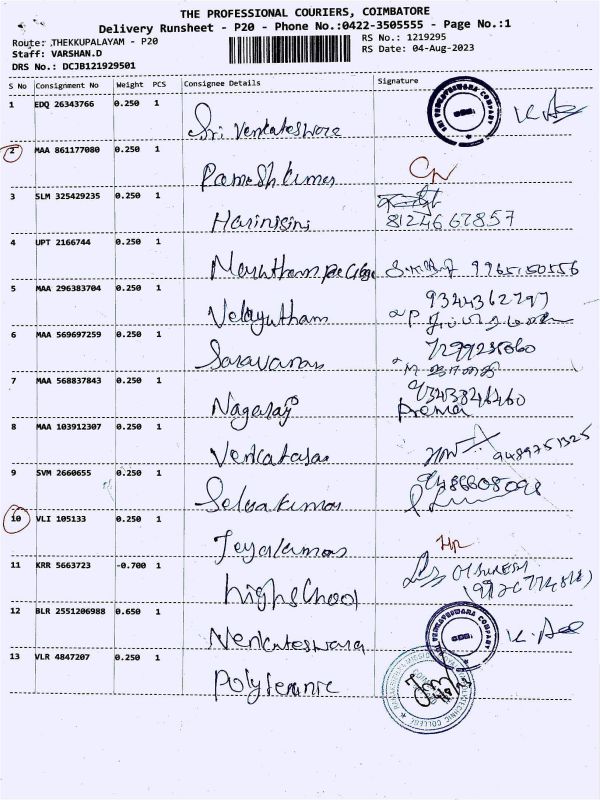 THE PROFESSIONAL COURIERS, COIMBATORE
Delivery Runsheet - P20 - Phone No.:0422-3505555 - Page No.:1
Route: THEKKUPALAYAM - P20
RS No.: 1219295
Staff: VARSHAN.D
RS Date: 04-Aug-2023
DRS No.: DCJB121929501
S No Consignment No Weight PCS Consignee Details Signature
1 EDQ 26343766 0.250 1
Sri Venkateswara
2 MAA 861177080 0.250 1
Ramesh Kumar
3 SLM 325429235 0.250 1
Harinisini
8124667857
4 UPT 2166744 0.250 1
9965150556
5 MAA 296383704 0.250 1
Velayutham
9344362797
6 MAA 569697259 0.250 1
Saravanan
7 MAA 568837843 0.250 1
Nagaraj
Prema
8 MAA 103912307 0.250 1
Venkatasan
9489751325
9 SVM 2660655 0.250 1
Selvakumar
9486608098
10 VLI 105133 0.250 1
Jeyakumar
11 KRR 5663723 -0.700 1
High School
12 BLR 2551206988 0.650 1
Venkateswara
SRI VENKATESWARA COMPANY
13 VLR 4847207 0.250 1
Polytecnic